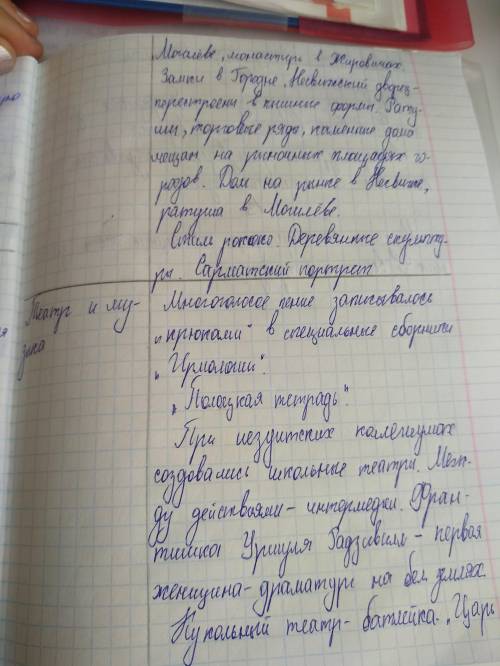 Могилёве, монастырь в Жировичах.
Замки в Гродне, Несвижский дворец-
перестроены в пышные формы. Рату-
ши, торговые ряды, каменные дома
мещан на рыночных площадях го-
родов. Дом на рынке в Несвиже,
ратуша в Могилёве.
Стиль рококо. Деревянные скульпту-
ры. Сарматский портрет
Театр и му-
зыка
Многоголосое пение записывалось
„крюками" в специальные сборники
„Ирмологии".
„Полоцкая тетрадь".
При иезуитских коллегиумах
создавались школьные театры. Меж-
ду действиями - интермедии. Фран-
тишка Уршуля Радзивилл - первая
женщина-драматург на бел. землях
Кукольный театр - батлейка. „Царь